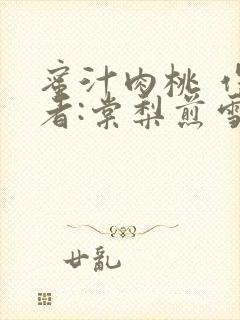 蜜汁肉桃 作
者:棠梨煎雪
廿亂